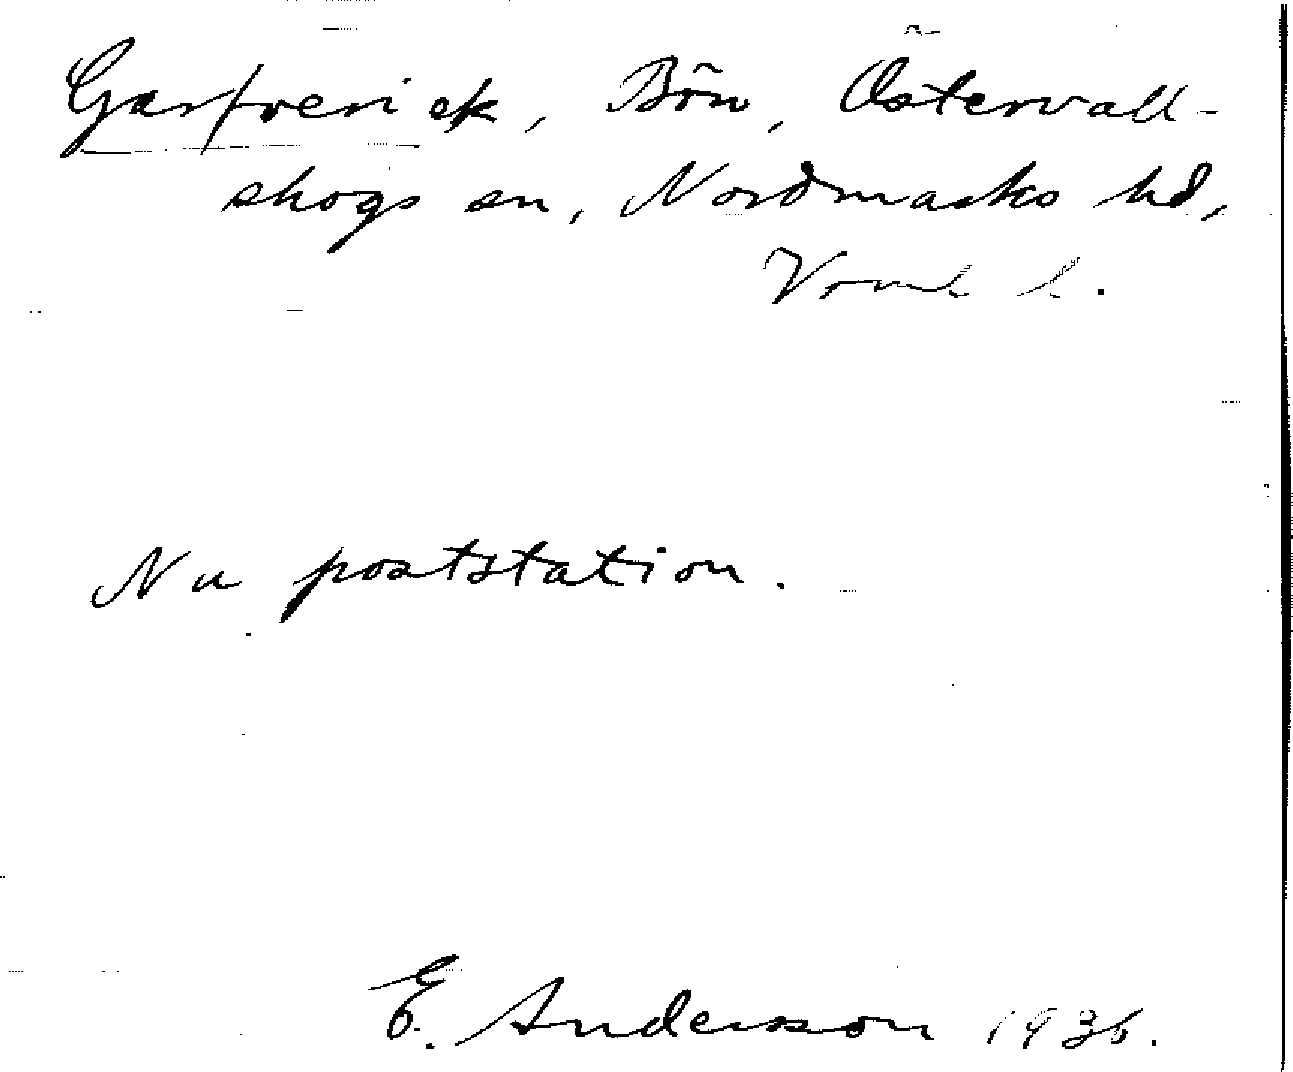 Garfveriek, Bön, Östervall-
skogs sn, Nordmarks hd,
Vrml l.
Nu poststation.
E. Andersson 1936.